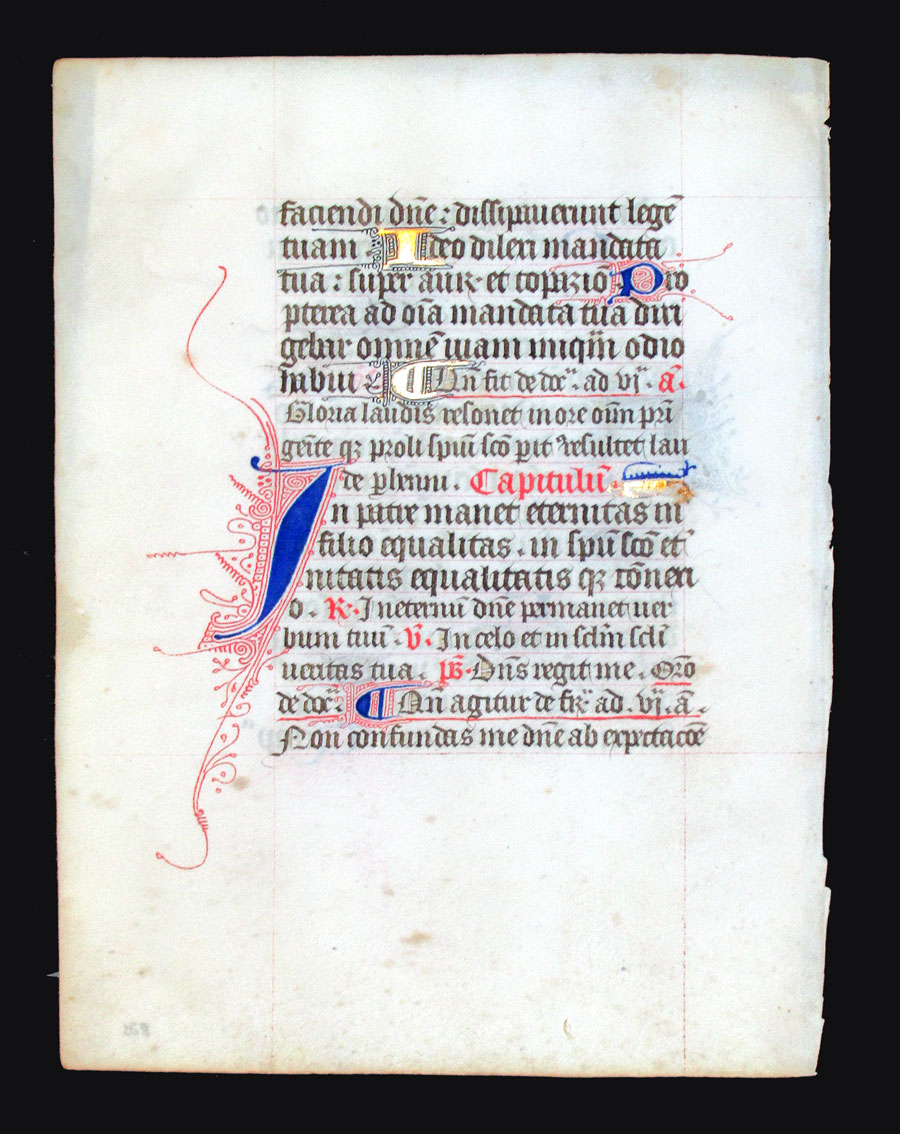 faciendi dñe : dissipauerunt legē
tuam Ideo dilexi mandata
tua : super auꝝ et topaziō Pro
pterea ad oīa mandata tua diri
gebar omnē uiam iniqm̄ odio
habui Qn̄ fit de doc̄ ad vj · a͞.
Gloria laudis resonet in ore om̄n pri
genit̄e qꝫ proli spiui sc̄o pit̄ resultet lau
de phenni . Capitulū.
In patre manet eternitas in
filio equalitas . in spū sc̄o et̄
nitatis equalitatis qꝫ cōnexi
o . R. In eternū dñe permanet uer
bum tuū . v̄. In celo et in sclm̄ scli
ueritas tua . ps̄. Dn̄s regit me . Orō
de doc̄ . Qn̄ agitur de fr̄ ad . vj . a͞ .
Non confundas me dñe ab expectacōe